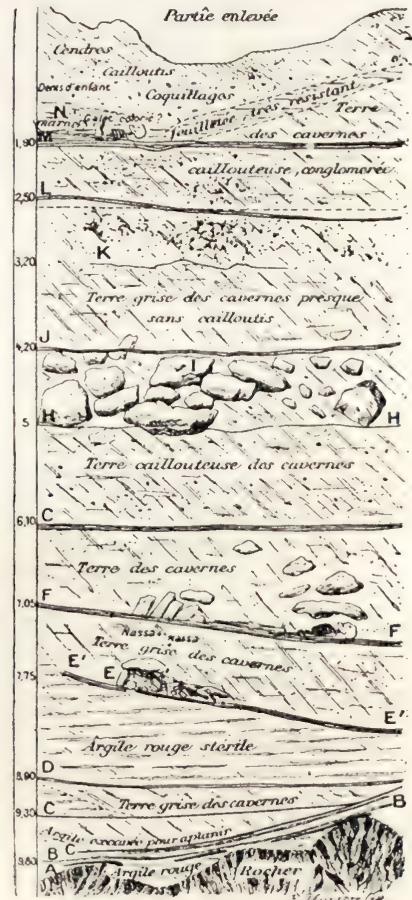 Partie enlevée
Cendres
Cailloutis
Dents d'enfant
Coquillages
N
marnes Galet colorié ?
feuillures très résistant
Terre
M
des cavernes
1,90
caillouteuse, conglomérée
L
2,50
K
3,20
Terre grise des cavernes presque
sans cailloutis
J
4,20
I
H
H
5
Terre caillouteuse des cavernes
C
6,10
Terre des cavernes
F
7,05
F
Nassa
Nassa
Terre grise des cavernes
E'
7,75
E
E'
Argile rouge stérile
D
8,90
Terre grise des cavernes
C
9,30
B
Argile excavée pour aplanir
B C
A
Argile rouge
Rocher